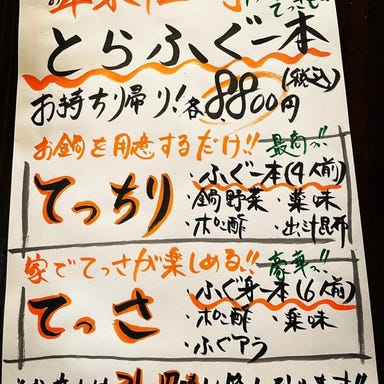 とらふぐ一本
お持ち帰り!各8.800円(税込)
お鍋を用意するだけ!! 最高っ!!
てっちり
・ふぐ一本(4人前)
・鍋野菜 ・薬味
・ポン酢 ・出汁昆布
家でてっさが楽しめる!! 豪華っ!!
てっさ
・ふぐ身一本(6人前)
・ポン酢 ・薬味
・ふぐアラ